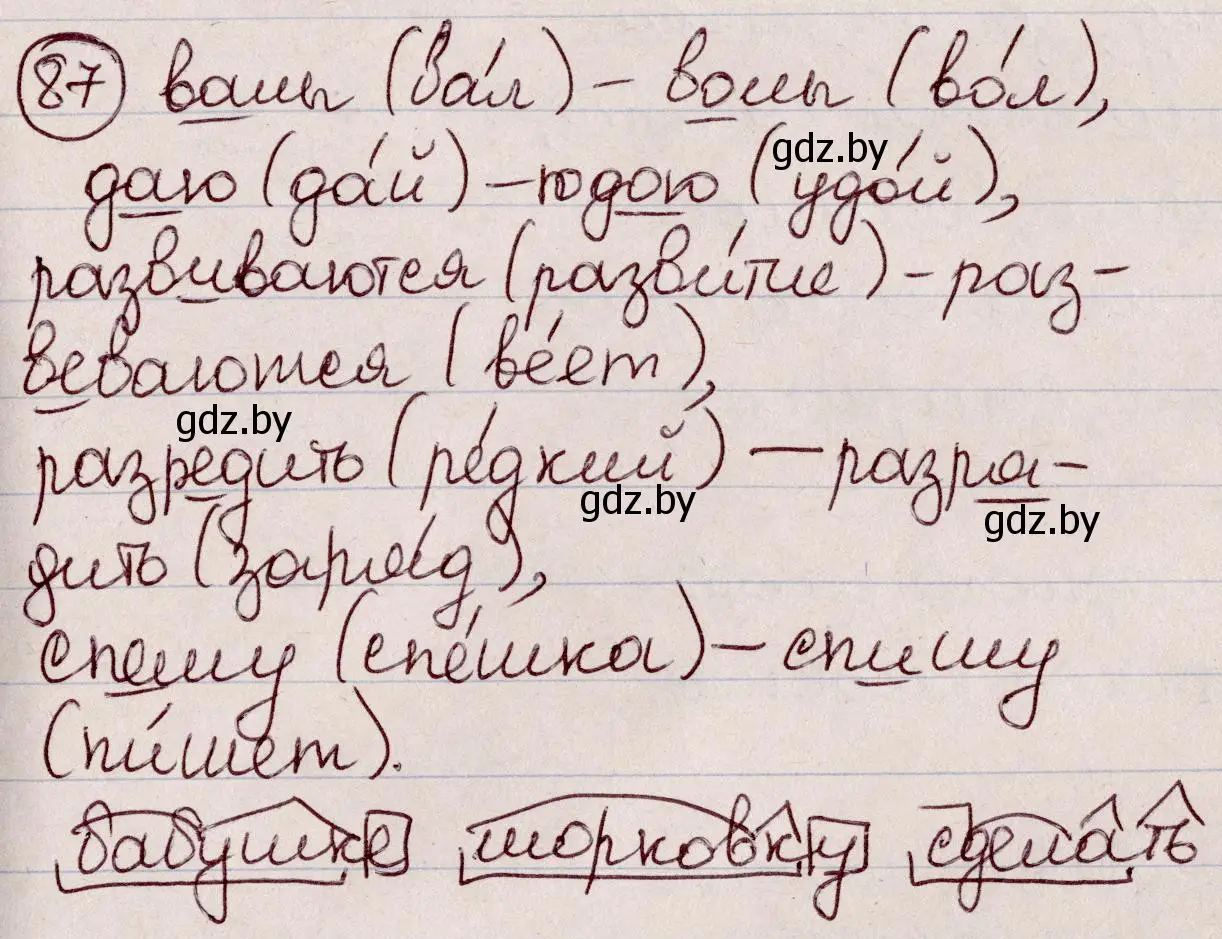 87 валы (ва́л) – волы (во́л),
gdz.by
даю (да́й) – юдою (удо́й),
развиваются (разви́тие) – раз-
веваются (ве́ет),
gdz.by
разредить (ре́дкий) — разря-
gdz.by
gdz.by
дить (заря́д),
спешу (спе́шка) – спишу
(пи́шет).
бабушке морковку сделать